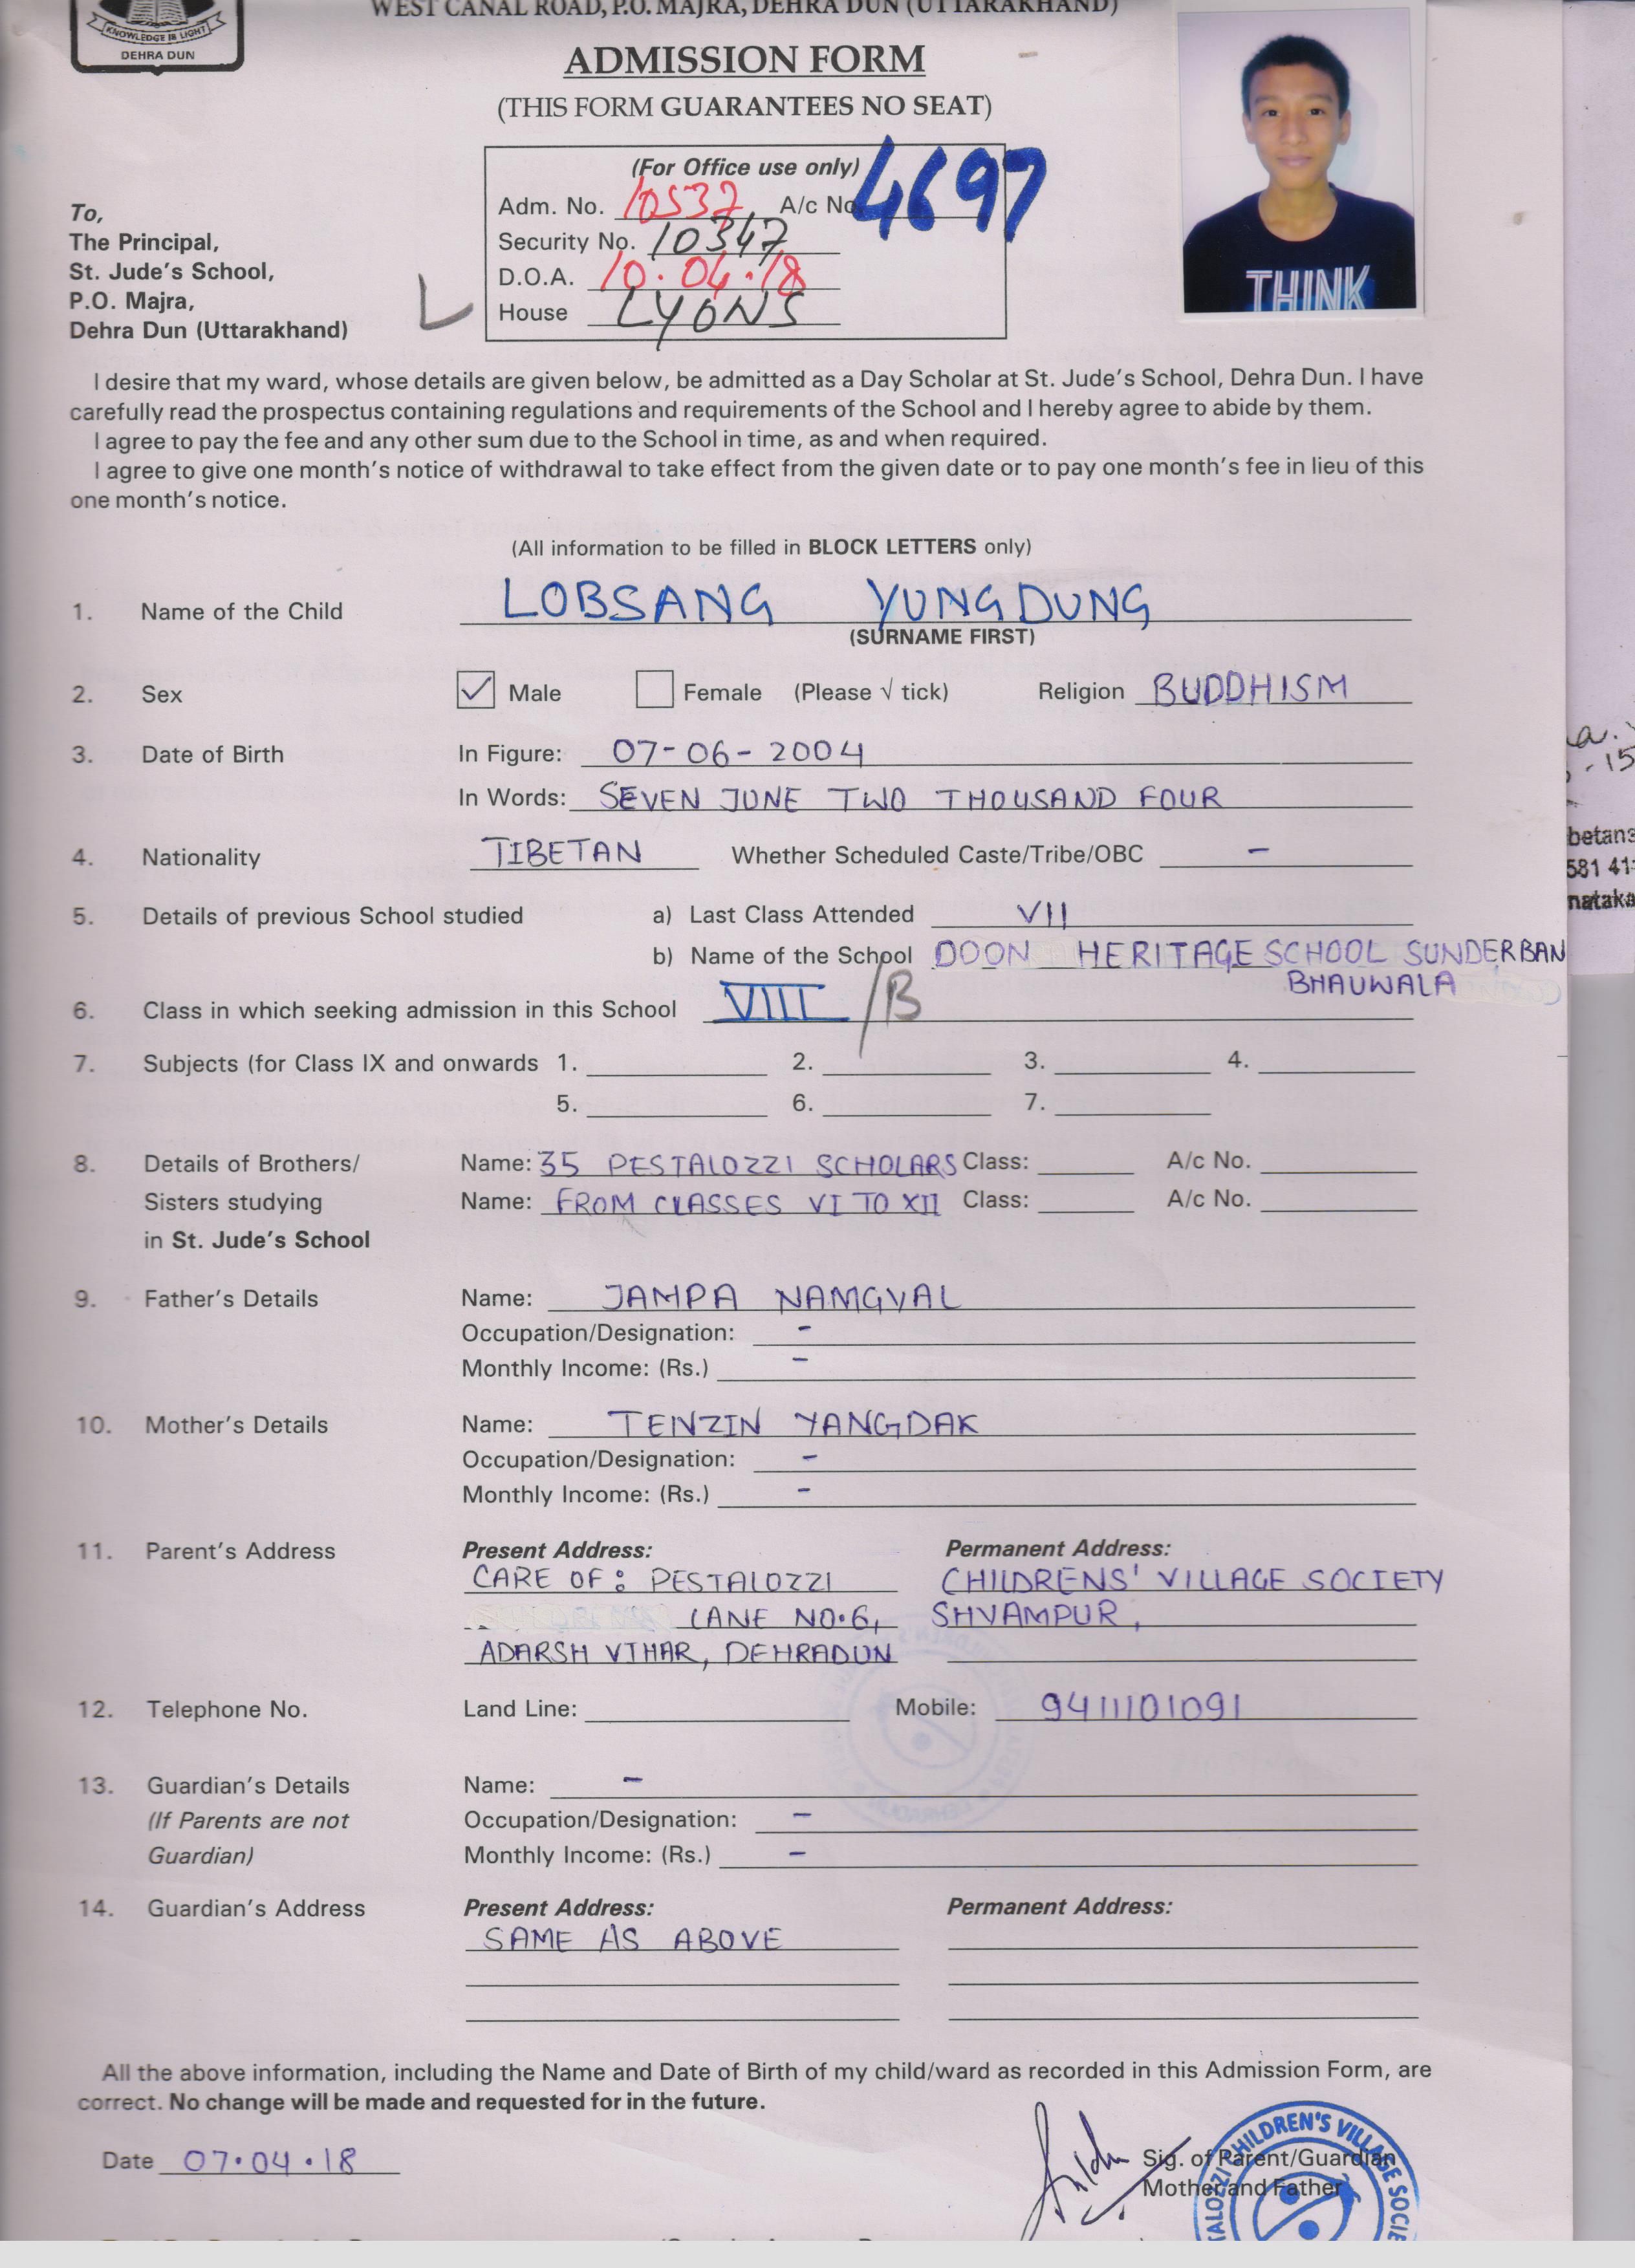 WEST CANAL ROAD, P.O. MAJRA, DEHRA DUN (UTTARAKHAND)
KNOWLEDGE IS LIGHT
DEHRA DUN
ADMISSION FORM
(THIS FORM GUARANTEES NO SEAT)
(For Office use only)
Adm. No. 10537 A/c No. 4697
Security No. 10347
D.O.A. 10.04.18
House LYONS
To,
The Principal,
St. Jude's School,
P.O. Majra,
Dehra Dun (Uttarakhand)
THINK
I desire that my ward, whose details are given below, be admitted as a Day Scholar at St. Jude's School, Dehra Dun. I have
carefully read the prospectus containing regulations and requirements of the School and I hereby agree to abide by them.
I agree to pay the fee and any other sum due to the School in time, as and when required.
I agree to give one month's notice of withdrawal to take effect from the given date or to pay one month's fee in lieu of this
one month's notice.
(All information to be filled in BLOCK LETTERS only)
1. Name of the Child LOBSANG YUNGDUNG
(SURNAME FIRST)
2. Sex Male Female (Please √ tick) Religion BUDDHISM
3. Date of Birth In Figure: 07-06-2004
In Words: SEVEN JUNE TWO THOUSAND FOUR
4. Nationality TIBETAN Whether Scheduled Caste/Tribe/OBC -
5. Details of previous School studied a) Last Class Attended VII
b) Name of the School DOON HERITAGE SCHOOL SUNDERBAN
BHAUWALA
6. Class in which seeking admission in this School VIII /B
7. Subjects (for Class IX and onwards 1. 2. 3. 4.
5. 6. 7.
8. Details of Brothers/ Name: 35 PESTALOZZI SCHOLARS Class: A/c No.
Sisters studying Name: FROM CLASSES VI TO XII Class: A/c No.
in St. Jude's School
9. Father's Details Name: JAMPA NAMGYAL
Occupation/Designation: -
Monthly Income: (Rs.) -
10. Mother's Details Name: TENZIN YANGDAK
Occupation/Designation: -
Monthly Income: (Rs.) -
11. Parent's Address Present Address: Permanent Address:
CARE OF: PESTALOZZI CHILDRENS' VILLAGE SOCIETY
LANE NO.6, SHYAMPUR,
ADARSH VIHAR, DEHRADUN
12. Telephone No. Land Line: Mobile: 9411101091
13. Guardian's Details Name: -
(If Parents are not Occupation/Designation: -
Guardian) Monthly Income: (Rs.) -
14. Guardian's Address Present Address: Permanent Address:
SAME AS ABOVE
All the above information, including the Name and Date of Birth of my child/ward as recorded in this Admission Form, are
correct. No change will be made and requested for in the future.
Date 07.04.18
Sig. of Parent/Guardian
Mother and Father
CHILDREN'S VILLAGE